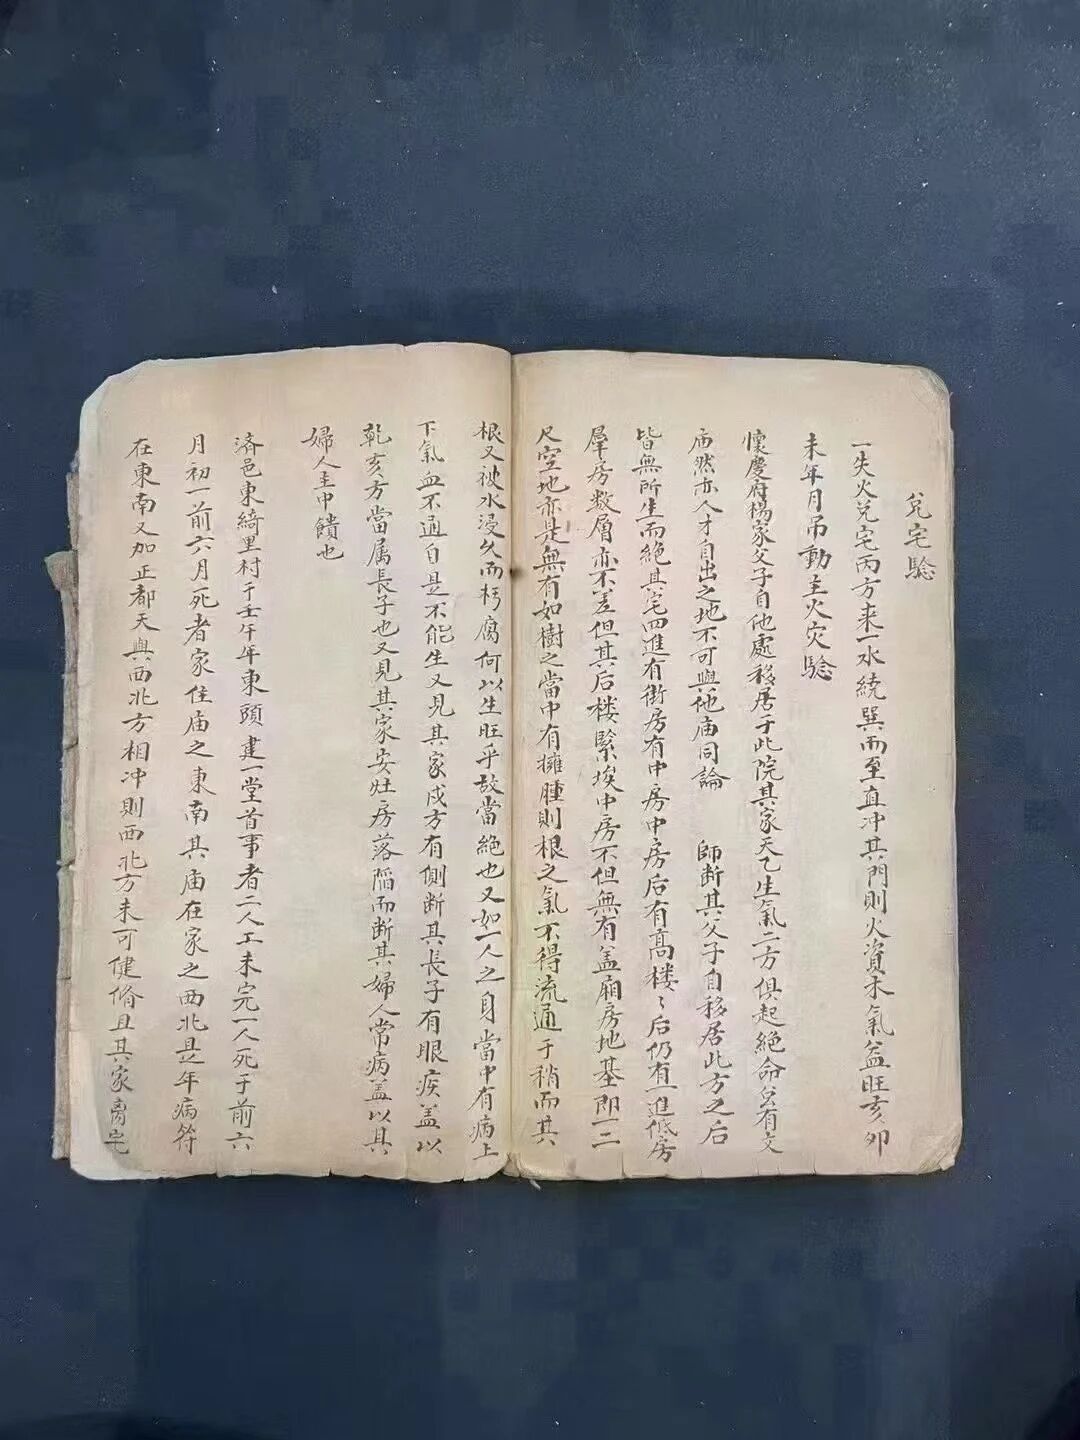 兌宅驗
一失火兌宅丙方来一水繞巽而至直冲其門則火資木氣益旺亥卯
未年月吊動主火灾驗
懷慶府楊家父子自他處移居于此院其家天乙生氣二方俱起絕命台有文
庙然亦人才自出之地不可與他庙同論　師断其父子自移居此方之后
皆無所生而絕其宅四進有街房有中房中房后有高楼〻后仍有一進低房
羣房数層亦不差但其后楼緊埃中房不但無有盖廂房地基即一二
尺空地亦是無有如樹之當中有擁腫則根之氣不得流通于稍而其
根又被水浸久而朽腐何以生旺乎故當絕也又如一人之身當中有病上
下氣血不通自是不能生又見其家戌方有側断其長子有眼疾盖以
乾亥方當属長子也又見其家安灶房落陷而断其婦人常病盖以其
婦人主中饋也
済邑東綺里村于壬午年東頭建一堂首事者二人工未完一人死于前六
月初一前六月死者家住庙之東南其庙在家之西北是年病符
在東南又加正都天與西北方相冲則西北方未可健脩且其家离宅